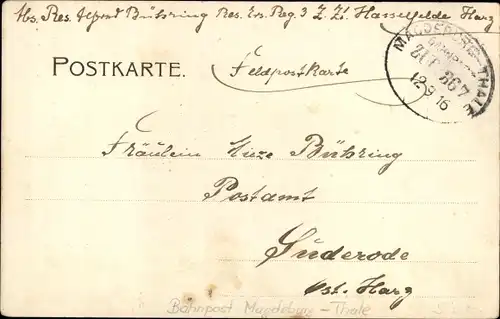 Abs. Res. Alfred Bühring Res. Ers. Reg. 3 z. Zt. Hasselfelde Harz
POSTKARTE.
Feldpostkarte
MAGDEBURG THALE
ZUG 867
12 9 16
Fräulein Bühring
Postamt
Suderode
Ost. Harz
Bahnpost Magdeburg - Thale